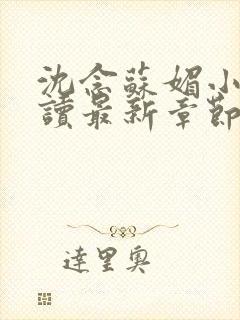 沈念蘇媚小
讀最新章節
達里奧